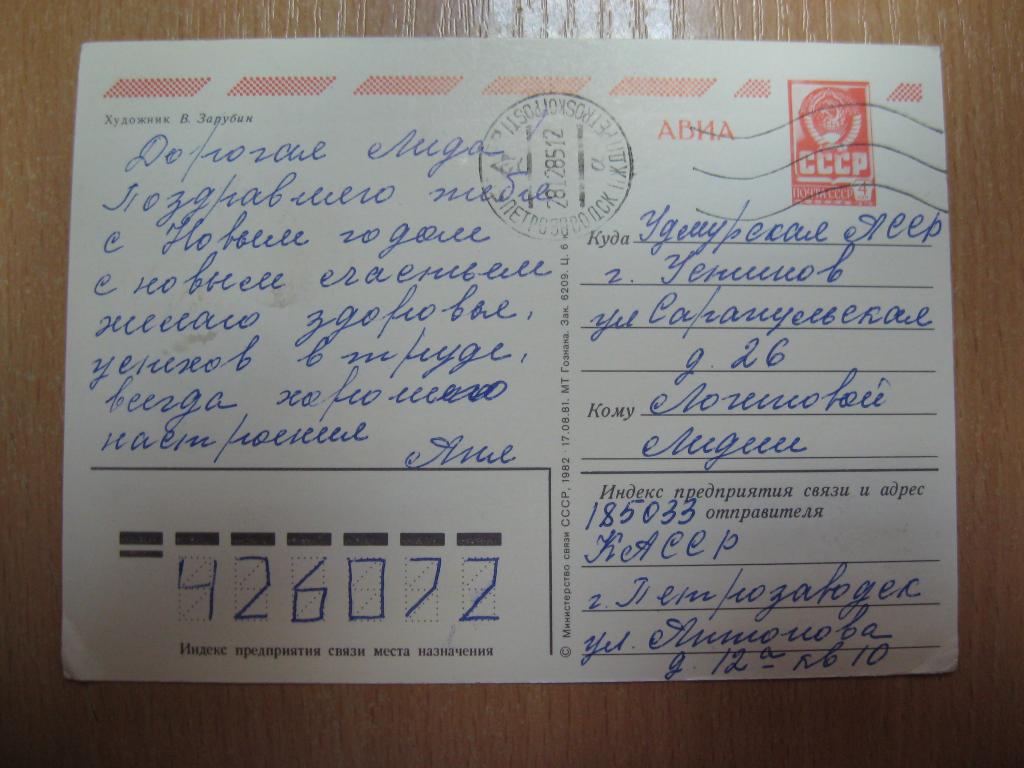 Художник В. Зарубин
АВИА
СССР
ПОЧТА СССР 4
ПЕТРОЗАВОДСК ПЖДП
PETROSKOI POSTI
28128512
а
Дорогая Лида
Поздравляю тебя
с Новым годом
с новым счастьем
желаю здоровья,
успехов в труде,
всегда хорошего
настроения
Аня
Куда Удмурская АССР
г. Устинов
ул Сарапульская
д. 26
Кому
Лидии
Индекс предприятия связи и адрес
185033 отправителя
КАССР
г. Петрозаводск
ул. Антонова
д. 12а кв 10
426072
Индекс предприятия связи места назначения
© Министерство связи СССР, 1982 · 17.08.81. МТ Гознака. Зак. 6209. Ц. 6 к